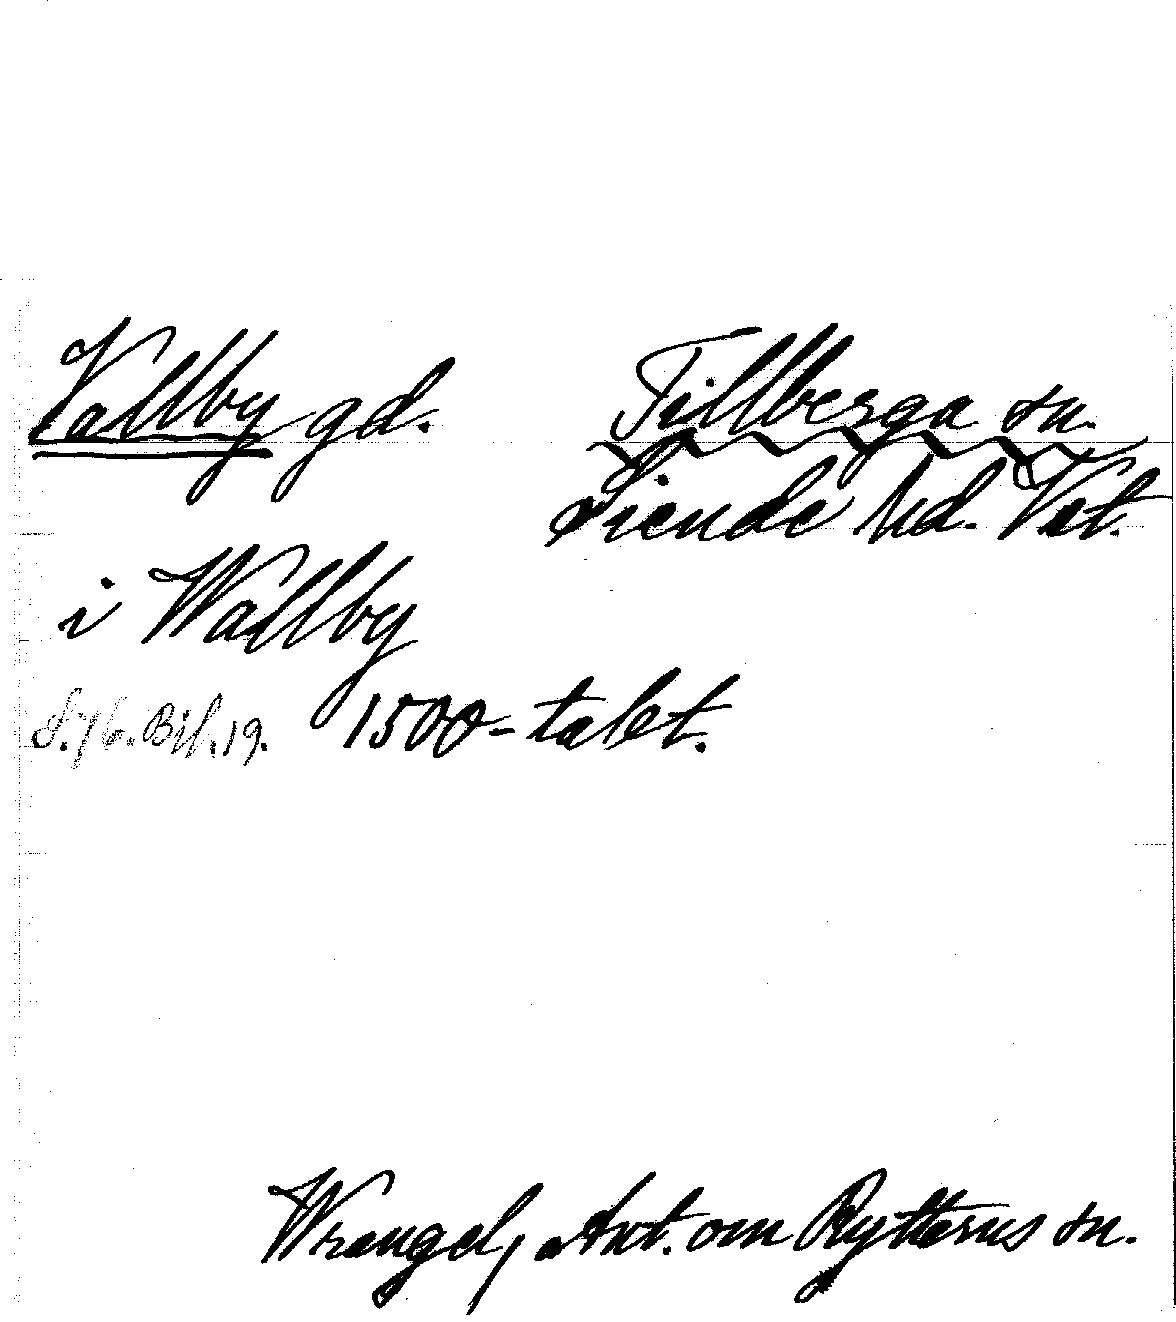 Vallby gd. Tillberga sn.
Siende hd. Vst.
i Wallby
S. 76. Bil. 19. 1500-talet.
Wrangel, Ant. om Rytterns sn.